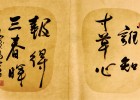 誰知
寸草心
報得
三春暉